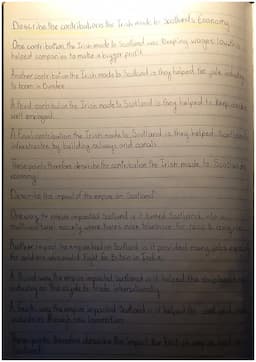 Describe the contributions the Irish made to Scotland's Economy
One contribution the Irish made to Scotland was keeping wages low
helped companies to make a bigger profit
Another contribution the Irish made to Scotland is they helped the jute industry
to boom in Dundee
A third contribution the Irish made to Scotland is they helped to keep
well employed.
A final contribution the Irish made to Scotland is they helped
infrastructure by building railways and canals
These points therefore describe the contribution the Irish made to Scotland's
economy
Describe the impact of the empire on Scotland
One way the empire impacted Scotland is it turned Scotland into
multicultural society where there was tolerance for race & religion
Another impact the empire had on Scotland is it provided many jobs
for soldiers who would fight for Britain in India.
A third way the empire impacted Scotland is it helped the
industry on the Clyde to trade internationally
A fourth way the empire impacted Scotland is it helped the
industries through new
These points therefore describe the impact the empire had on
Scotland